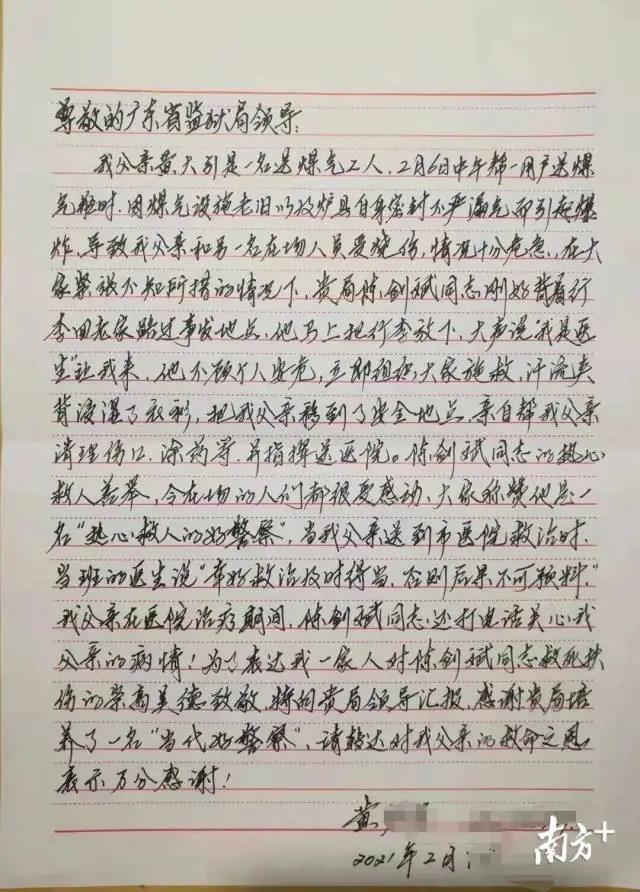 尊敬的广东省监狱局领导：
我父亲黄大别是一名送煤气工人，2月6日中午帮一用户送煤
气瓶时，因煤气设施老旧以及炉具自身密封不严漏气而引起爆
炸，导致我父亲和另一名在场人员受烧伤，情况十分危急，在大
家紧张不知所措的情况下，贵局陈剑斌同志刚好背着行
李回老家路过事发地点，他马上把行李放下，大声说"我是医
生"让我来，他不顾个人安危，立即组织大家施救，汗流夹
背浸湿了衣衫，把我父亲移到了安全地点，亲自帮我父亲
清理伤口、涂药等，并指挥送医院。陈剑斌同志的热心
救人善举，令在场的人们都很受感动，大家称赞他是一
名"热心救人的好警察"，当我父亲送到市医院救治时，
当班的医生说"幸好救治及时得当，否则后果不可预料，"
我父亲在医院治疗期间，陈剑斌同志还打电话关心我
父亲的病情！为了表达我一家人对陈剑斌同志救死扶
伤的崇高美德致敬，特向贵局领导汇报，感谢贵局培
养了一名"当代好警察"，请转达对我父亲的救命之恩
表示万分感谢！
黄
2021年2月
南方+